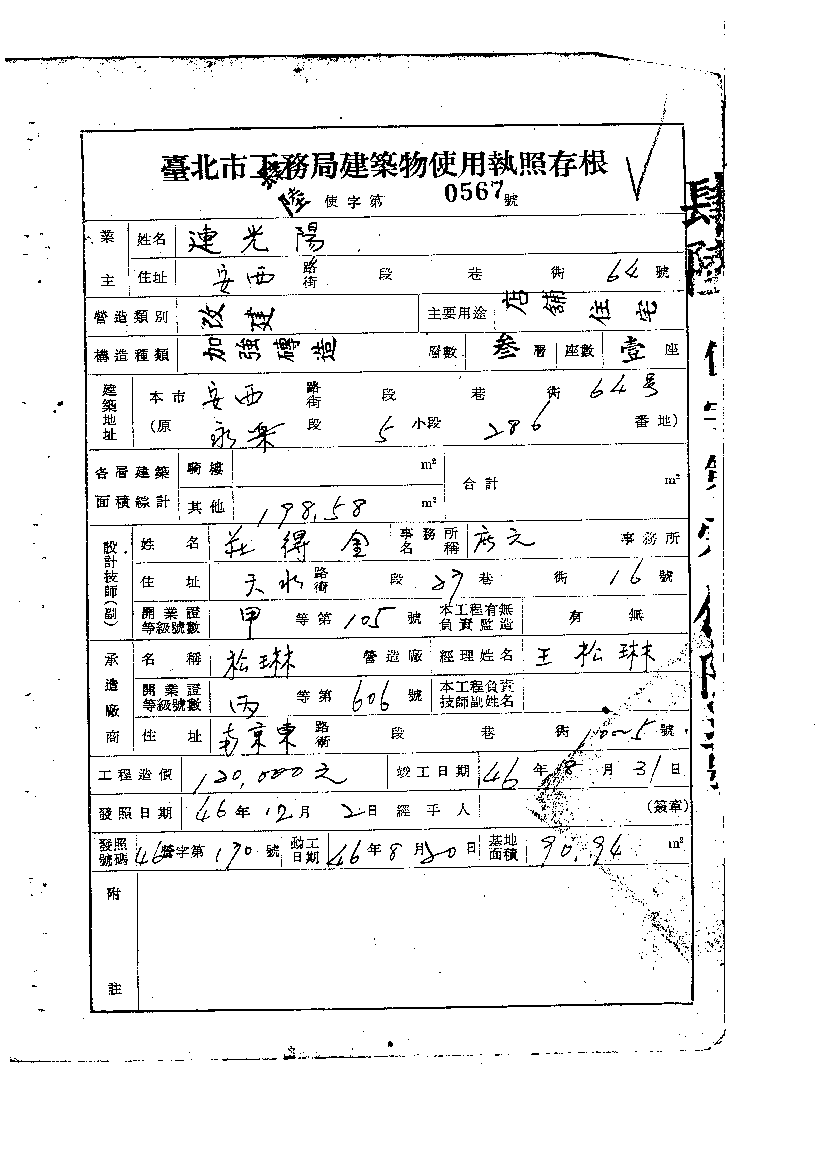 臺北市工務局建築物使用執照存根
肆陸 使字第 0567 號
業主 姓名 連光陽
住址 安西 路街 段 巷 衖 64 號
營造類別 改建 主要用途 店舖住宅
構造種類 加強磚造 層數 叁 層 座數 壹 座
建築地址 本市 安西 路街 段 巷 衖 64号
(原 永樂 段 5 小段 286 番地)
各層建築面積綜計 騎樓 m² 合計 m²
其他 198.58 m²
設計技師(副) 姓名 莊得金 事務所名稱 事務所
住址 天水 路街 段 27 巷 衖 16 號
開業證等級號數 甲 等第 105 號 本工程有無負責監造 有 無
承造廠商 名稱 松琳 營造廠 經理姓名 王松琳
開業證等級號數 丙 等第 606 號 本工程負責技師副姓名
住址 南京東 路街 段 巷 衖 號
工程造價 120,000元 竣工日期 46年 8月 31日
發照日期 46年 12月 2日 經手人 (簽章)
發照號碼 46營字第 190 號 動工日期 46年 8月 20日 基地面積 90.94 m²
附註